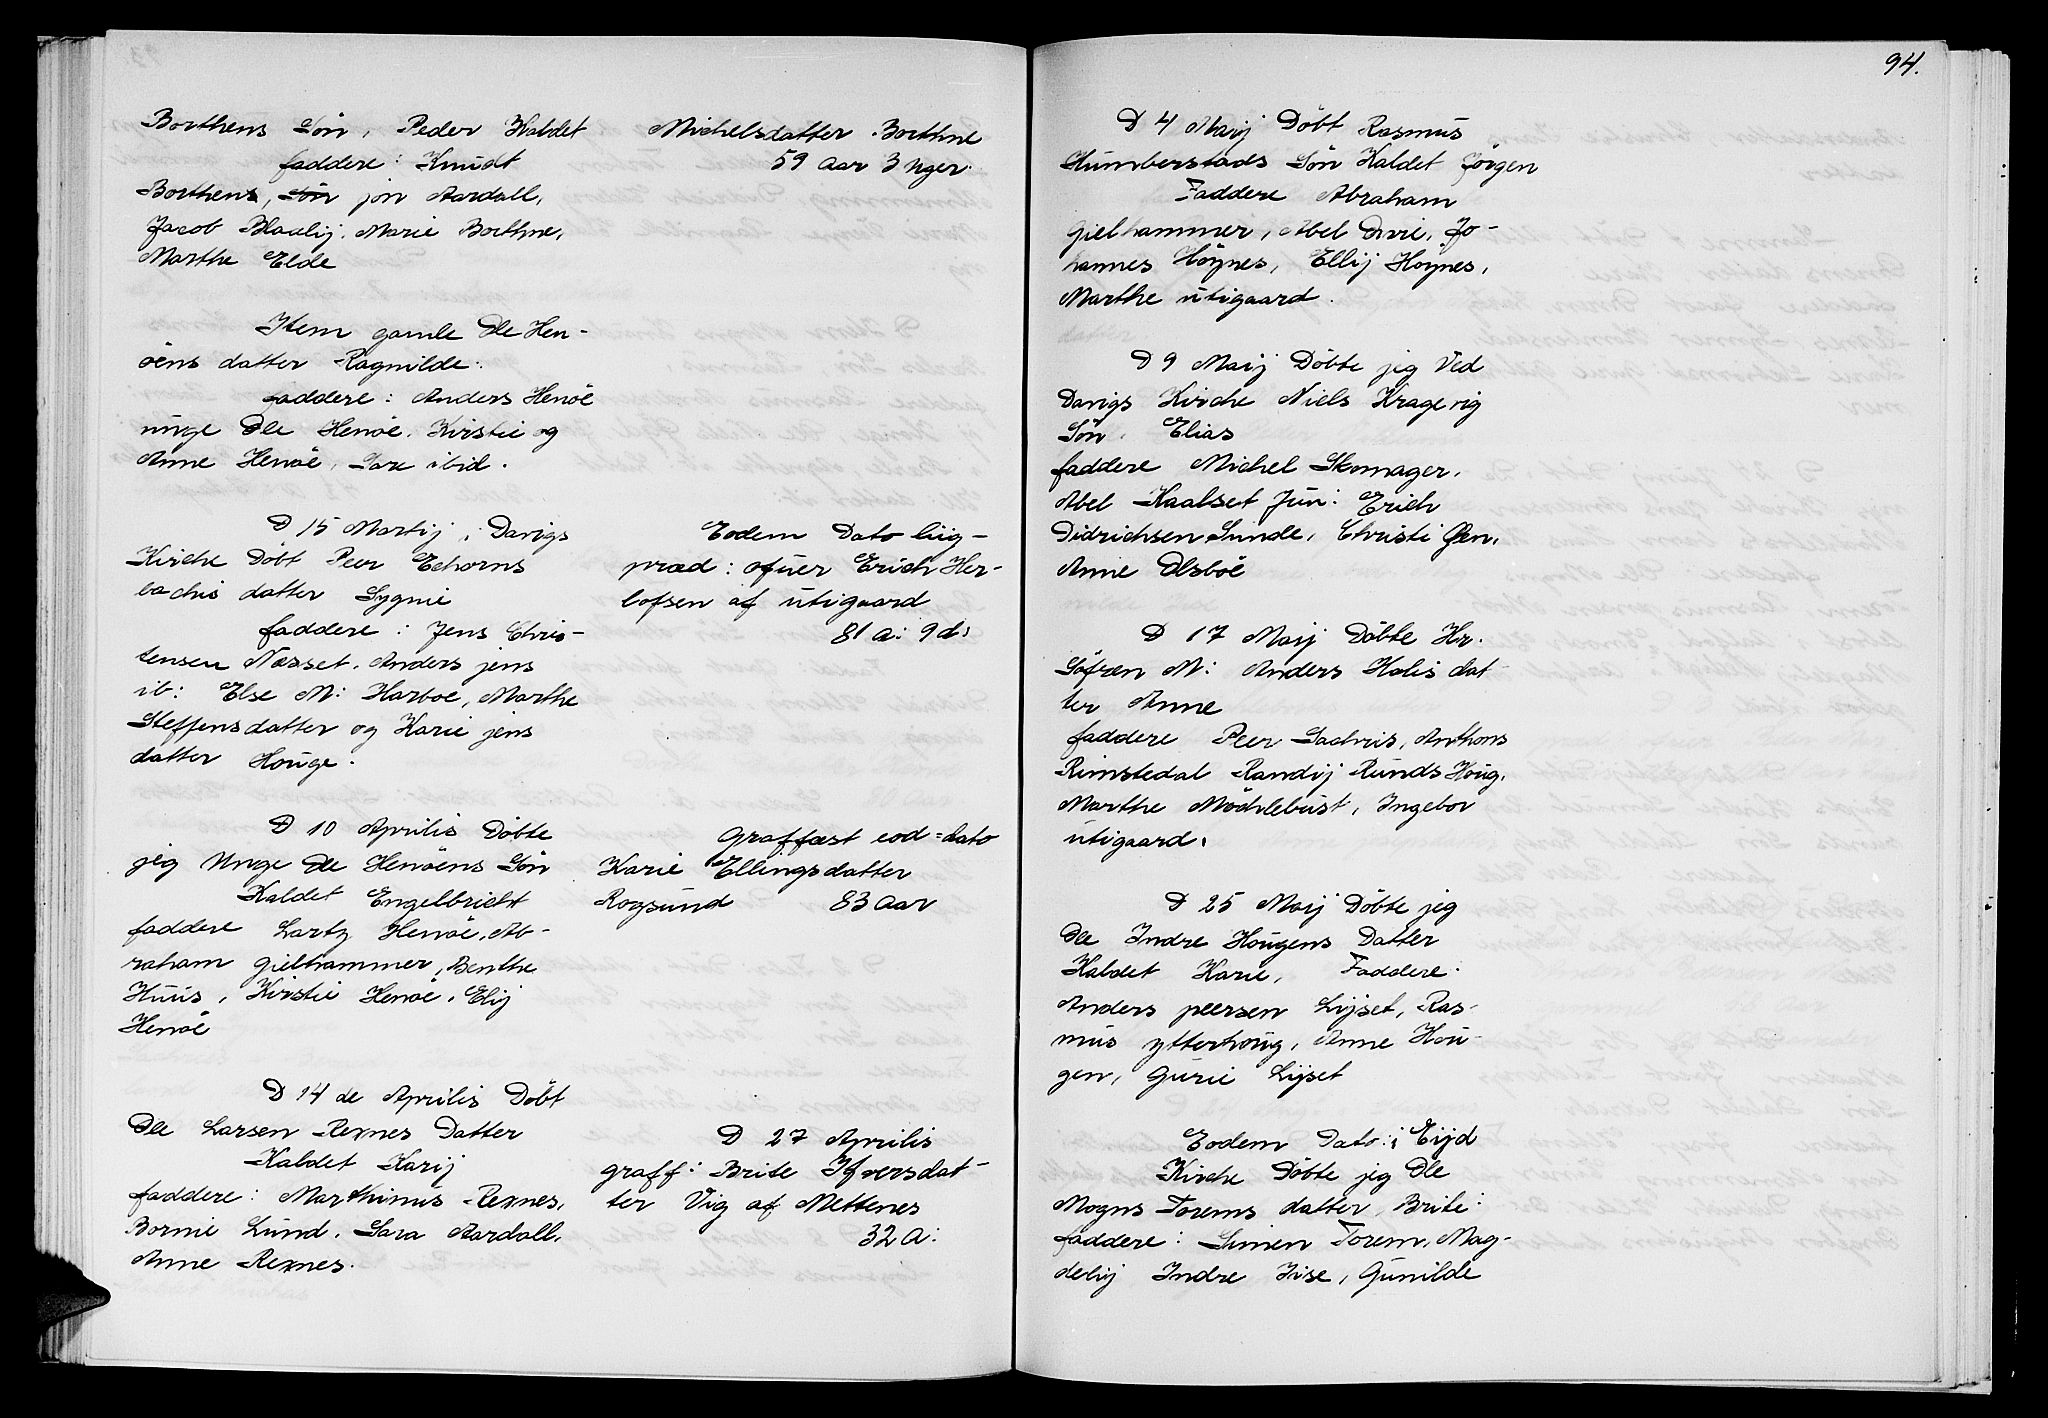 Borthens Søn, Peder Kaldet
faddere: Knudt
Borthens, Søn jon Aardall,
Jacob Blaalij, Marie Borthne,
Marthe Elde
Item gamle Ole Hen-
öens datter Ragnilde:
faddere: Anders Henöe
unge Ole Henöe, Kirstie og
Anne Henöe, Sara ibid.
D 15 Martij i Davigs
Kirche Döbt Peer Echorns
bachis datter Sygnie
faddere: Jens Chris-
tensen Næsset, Anders jens
ib: Else M: Harboe, Marthe
Steffensdatter og Karie jens
datter Houge.
D 10 Aprilis Döbte
jeg Unge Ole Henöens Søn
Kaldet Engelbricht
faddere Lartz Henöe, Ab-
raham gielhammer, Benthe
Huus, Kirstie Henöe, Elij
Henöe
D 14 de Aprilis Döbt
Ole Larsen Rexnes Datter
Kaldet Karij
faddere: Marthinus Rexnes,
Bornie Lund, Sara Aardall,
Anne Rexnes.
Michelsdatter Borthne
59 aar 3 uger.
Eodem Dato liig-
præd: ofuer Erich Her-
lofsen af utigaard
81 a: 9 d:
graffæst eod=dato
Karie Ellingsdatter
Rogsund 83 aar
D 27 Aprilis
graff: Brite Ifversdat-
ter Vig af Mettenes
32 a:
94.
D 4 Maij Döbt Rasmus
Humberstads Søn Kaldet Jörgen
Faddere Abraham
gielhammer, Abel Orvie, Jo-
hannes Höynes, Ellij Höynes,
Marthe utigaard.
D 9 Maij Döbte jeg Ved
Davigs Kirche Niels Kragevig
Søn. Elias
faddere Michel Skomager,
Abel Kaalset Jun: Erich
Didrichsen Sunde, Christi Øen,
Anne Olsböe
D 17 Maij Döbte Hr.
Söfren M: Anders Kolis dat-
ter Anne
faddere Peer Sachris, Anthons
Rimstedal Randij Runds Houg,
Marthe Möchlebust, Ingebor
utigaard.
D 25 Maij Döbte jeg
Ole Indre Hougens Datter
Kaldet Karie, Faddere:
Anders peersen Lijset, Ras-
mus ytterhoug, Anne Hou-
gen, Gurie Lijset
Eodem Dato: i Eijd
Kirche Döbte jeg Ole
Mogns Torems datter, Brite:
faddere: Simen Torem, Mag-
delij Indre Jise, Gunilde